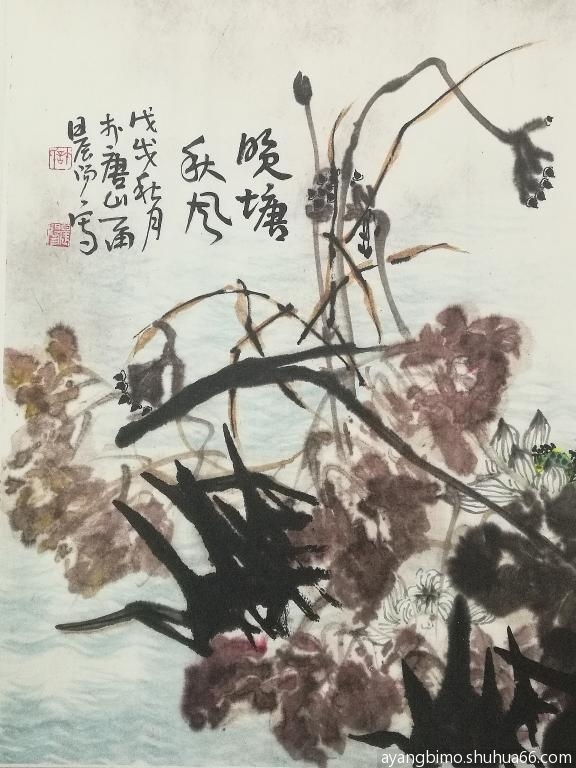 晚塘
秋风
戊戌秋月
于唐山
晨
写
ayangbimo.shuhua66.com